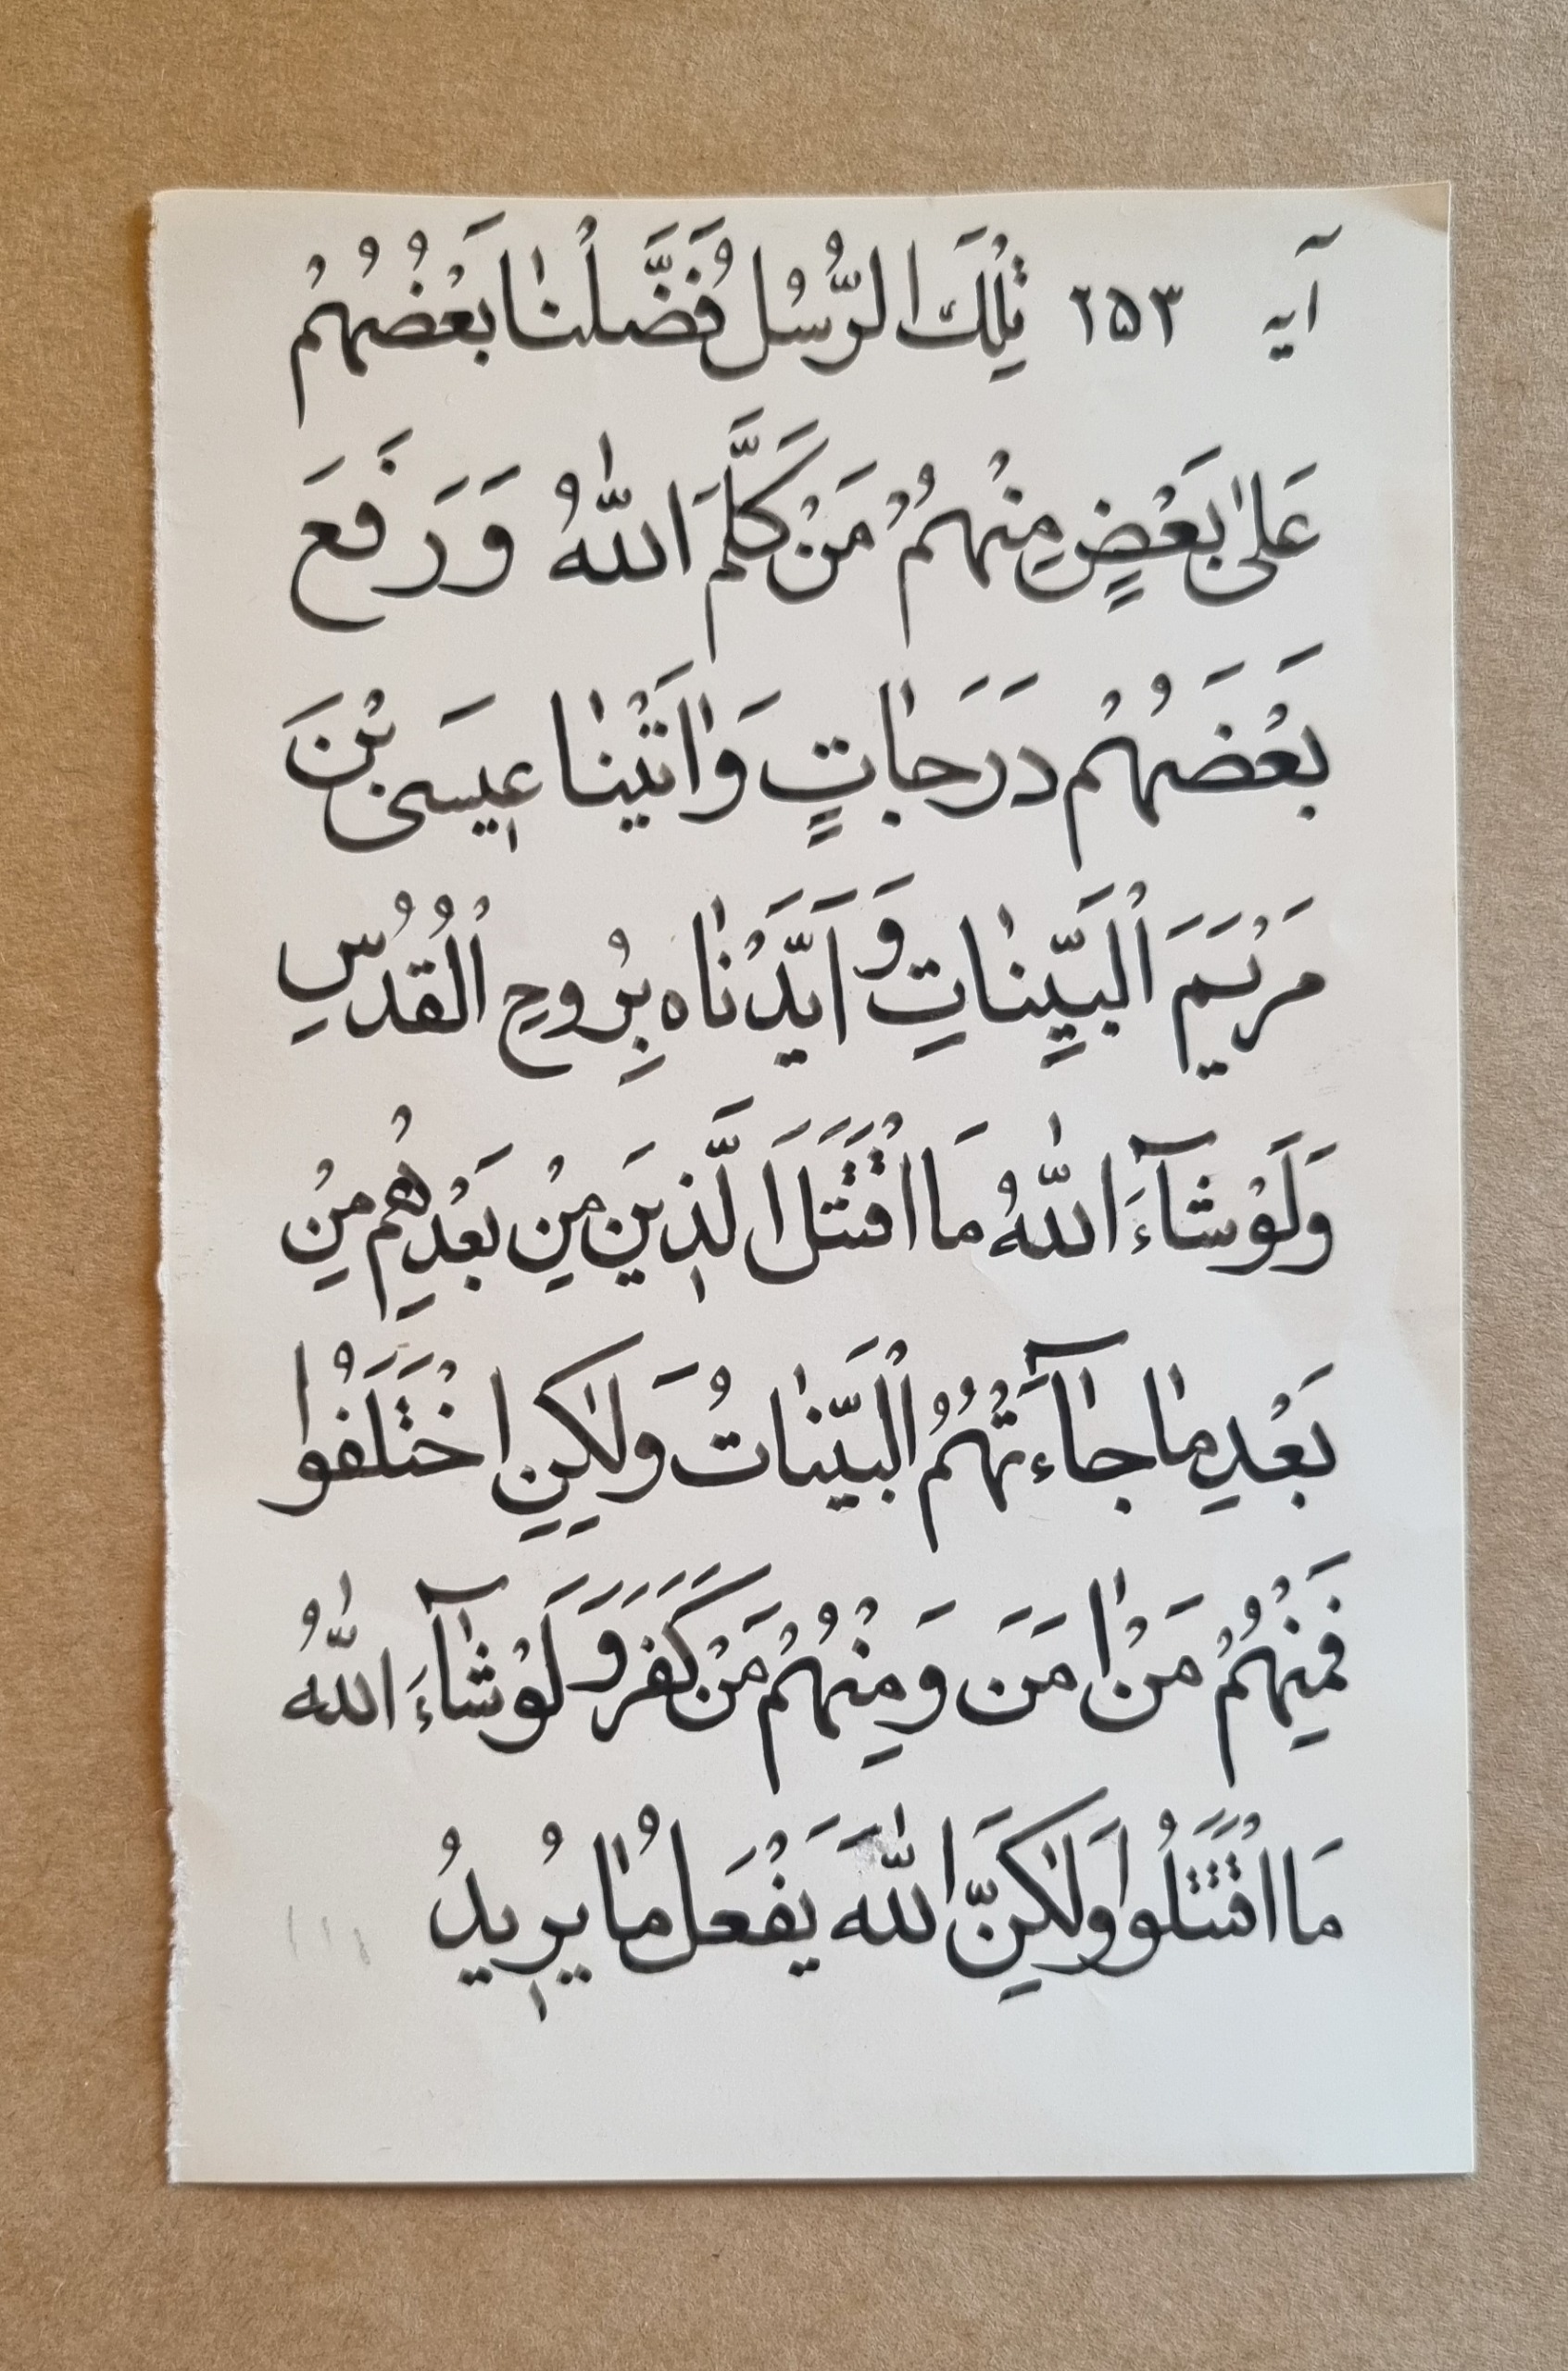 آیه ۲۵۳ تِلْكَ الرُّسُلُ فَضَّلْنٰا بَعْضُهُمْ
عَلىٰ بَعْضٍ مِنْهُمْ مَنْ كَلَّمَ اللّٰهُ وَ رَفَعَ
بَعْضَهُمْ دَرَجٰاتٍ وَ اٰتَيْنٰا عِيسَى بْنَ
مَرْيَمَ الْبَيِّنٰاتِ وَ اَيَّدْنٰاه بِرُوحِ الْقُدُسِ
وَ لَوْ شَآءَ اللّٰهُ مَا اقْتَتَلَ الَّذِينَ مِنْ بَعْدِهِمْ مِنْ
بَعْدِ مٰا جٰآءَتْهُمُ الْبَيِّنٰاتُ وَ لٰكِنِ اخْتَلَفُوا
فَمِنْهُمْ مَنْ اٰمَنَ وَ مِنْهُمْ مَنْ كَفَرَ وَ لَوْ شٰآءَ اللّٰهُ
مَا اقْتَتَلُوا وَ لٰكِنَّ اللّٰهَ يَفْعَلُ مٰا يُرِيدُ